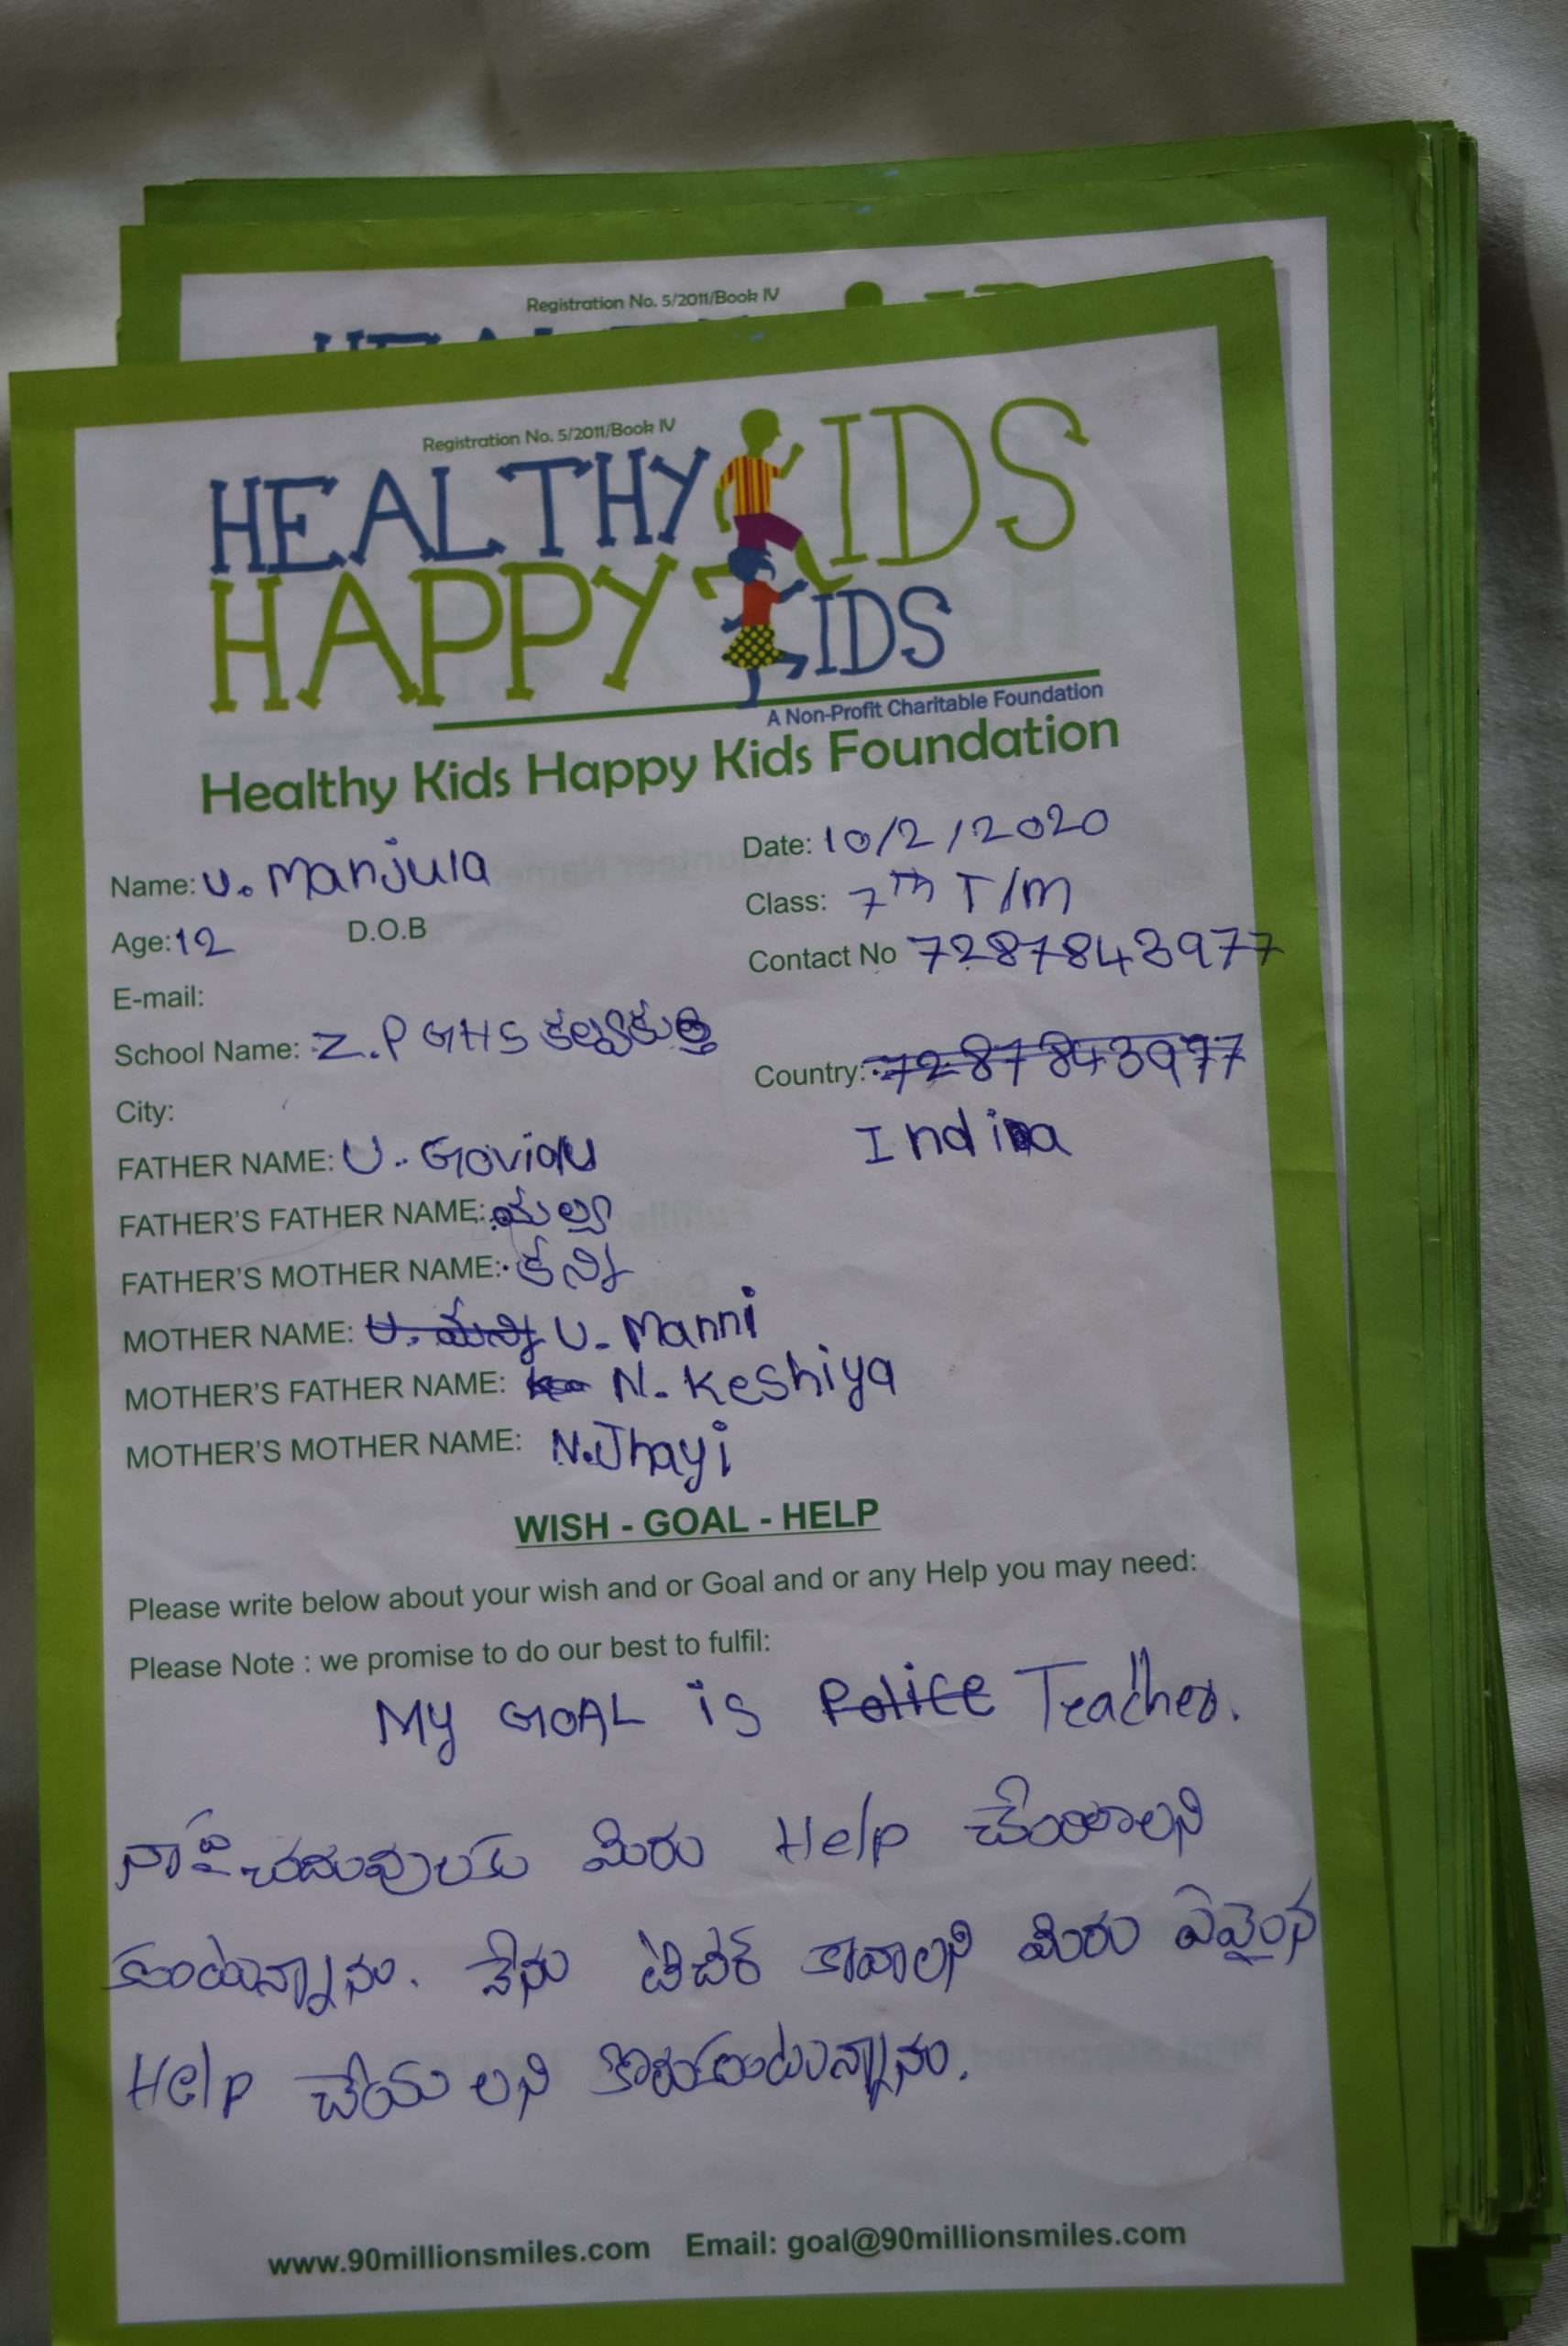 Registration No. 5/2011/Book IV
Registration No. 5/2011/Book IV
HEALTHY KIDS
HAPPY KIDS
A Non-Profit Charitable Foundation
Healthy Kids Happy Kids Foundation
Name: U. Manjula
Date: 10/2/2020
Age: 12 D.O.B
Class: 7th T/M
Contact No 7287843977
E-mail:
School Name: Z.P GHS కల్వకుర్తి
Country: 7287843977
India
City:
FATHER NAME: U. Govidu
FATHER'S FATHER NAME:
FATHER'S MOTHER NAME:
MOTHER NAME: U. మన్ని U. Manni
MOTHER'S FATHER NAME: N. Keshiya
MOTHER'S MOTHER NAME: N.Jhayi
WISH - GOAL - HELP
Please write below about your wish and or Goal and or any Help you may need:
Please Note : we promise to do our best to fulfil:
My GOAL is Police Teacher.
నా పై చదువులకు మిరు Help చేయాలని
కుంటున్నాను. నేను టిచర్ కావాలని మిరు ఏవైన
Help చేయలని కొరుకుంటున్నాను.
www.90millionsmiles.com Email: goal@90millionsmiles.com